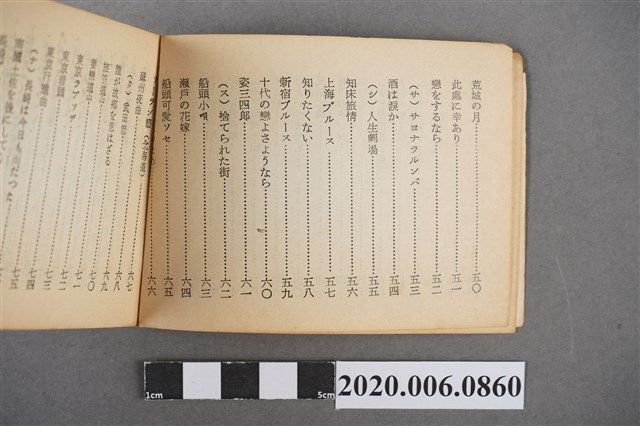 荒城の月…五〇
此處に幸あり…五一
戀をするなら…五二
(サ) サヨナラルンバ…五三
酒は涙か…五四
(シ) 人生劇場…五五
知床旅情…五六
上海ブルース…五七
知りたくない…五八
新宿ブルース…五九
十代の戀よさようなら…六〇
姿三四郎…六一
(ス) 捨てられた街…六二
船頭小唄…六三
瀬戸の花嫁…六四
船頭可愛ソセ…六五
六六
蘇州夜曲…六七
六八
誰が故郷を思はざる…六九
七〇
東京ラ
七一
東京音頭…七二
東京行進曲…七三
(ナ) 長崎は今日も雨だつた…七四
南國土佐を後にして…七五
1cm
5cm
2020.006.0860